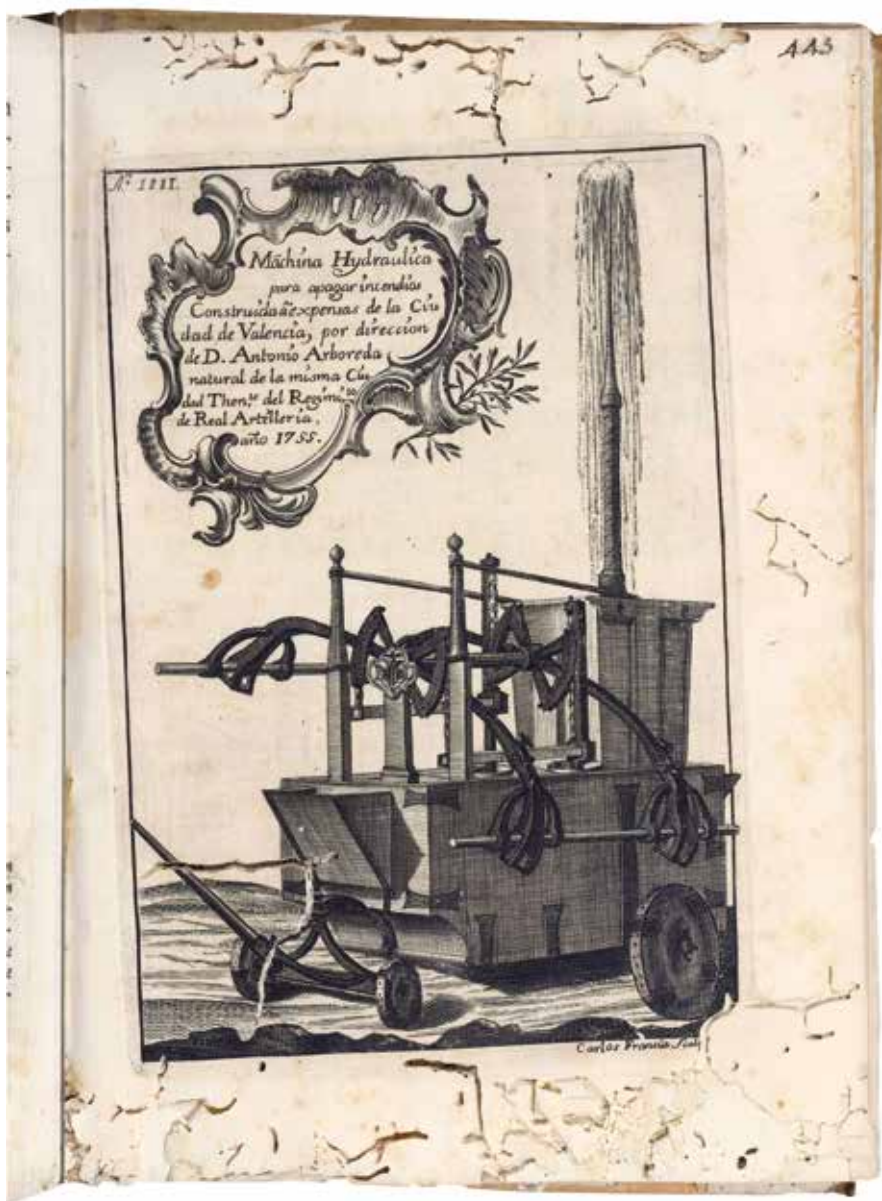 443
Nº. IIII.
Máchina Hydraulica
para apagar incendios
Construida à expensas de la Ciu
dad de Valencia, por direccion
de D. Antonio Arboreda
natural de la misma Ciu
dad Then.te del Regimi.to
de Real Artilleria,
año 1755.
Carlos Francia Sculp